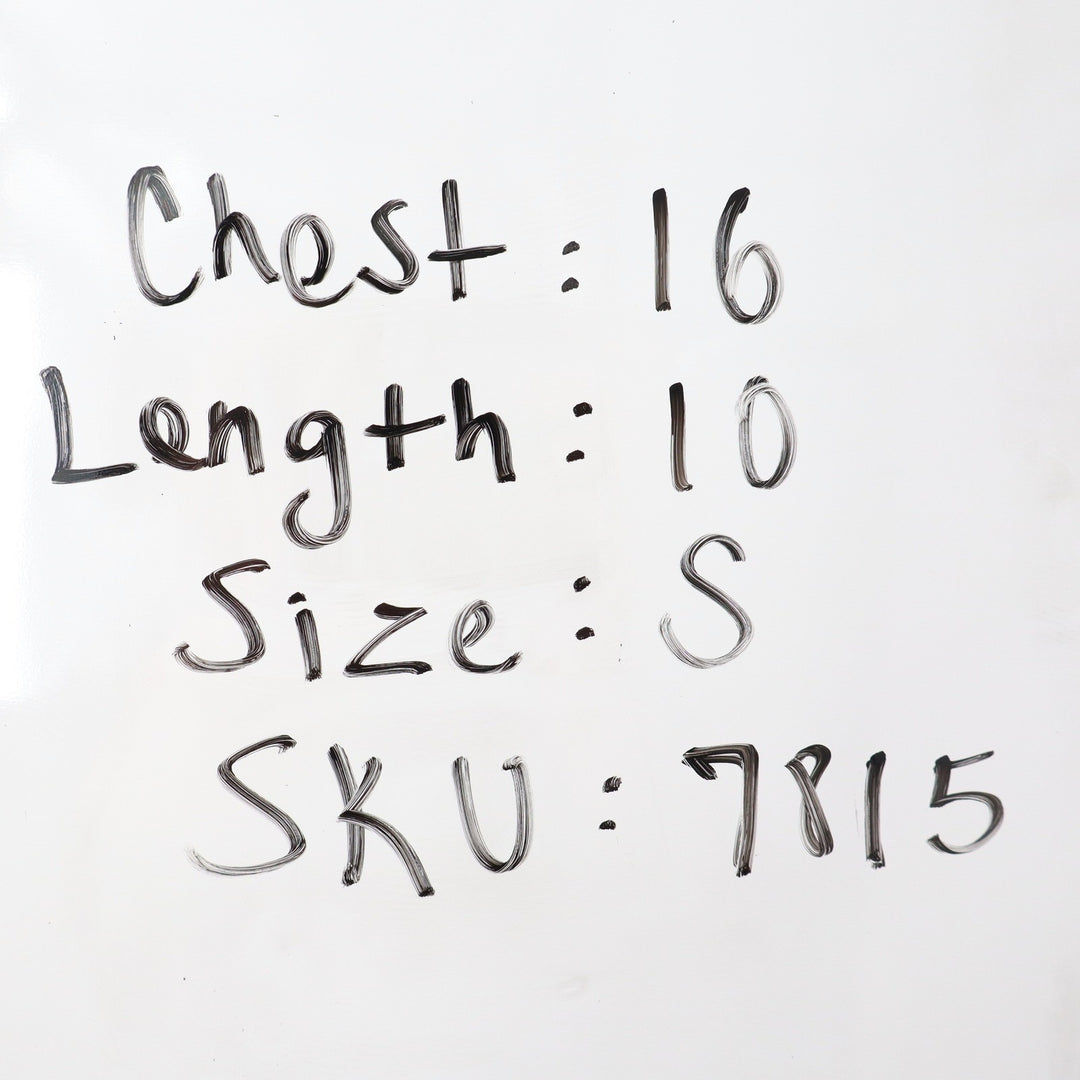 Chest: 16
Length: 10
Size: S
SKU: 7815